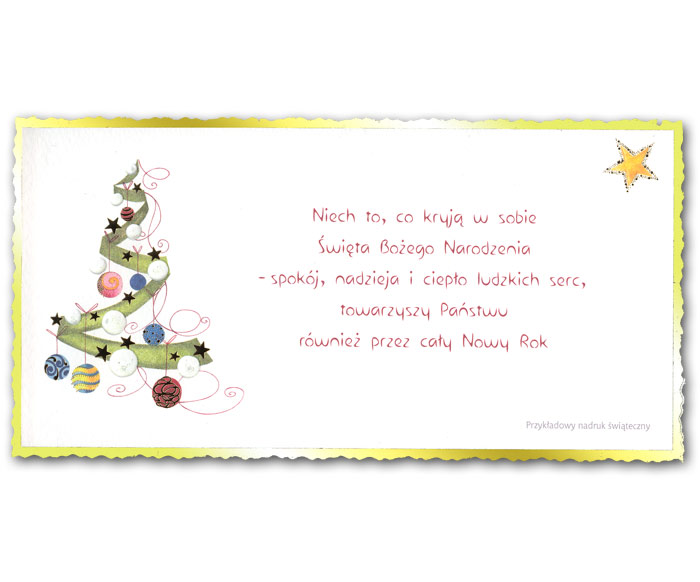 Niech to, co kryją w sobie
Święta Bożego Narodzenia
- spokój, nadzieja i ciepło ludzkich serc,
towarzyszy Państwu
również przez cały Nowy Rok
Przykładowy nadruk świąteczny